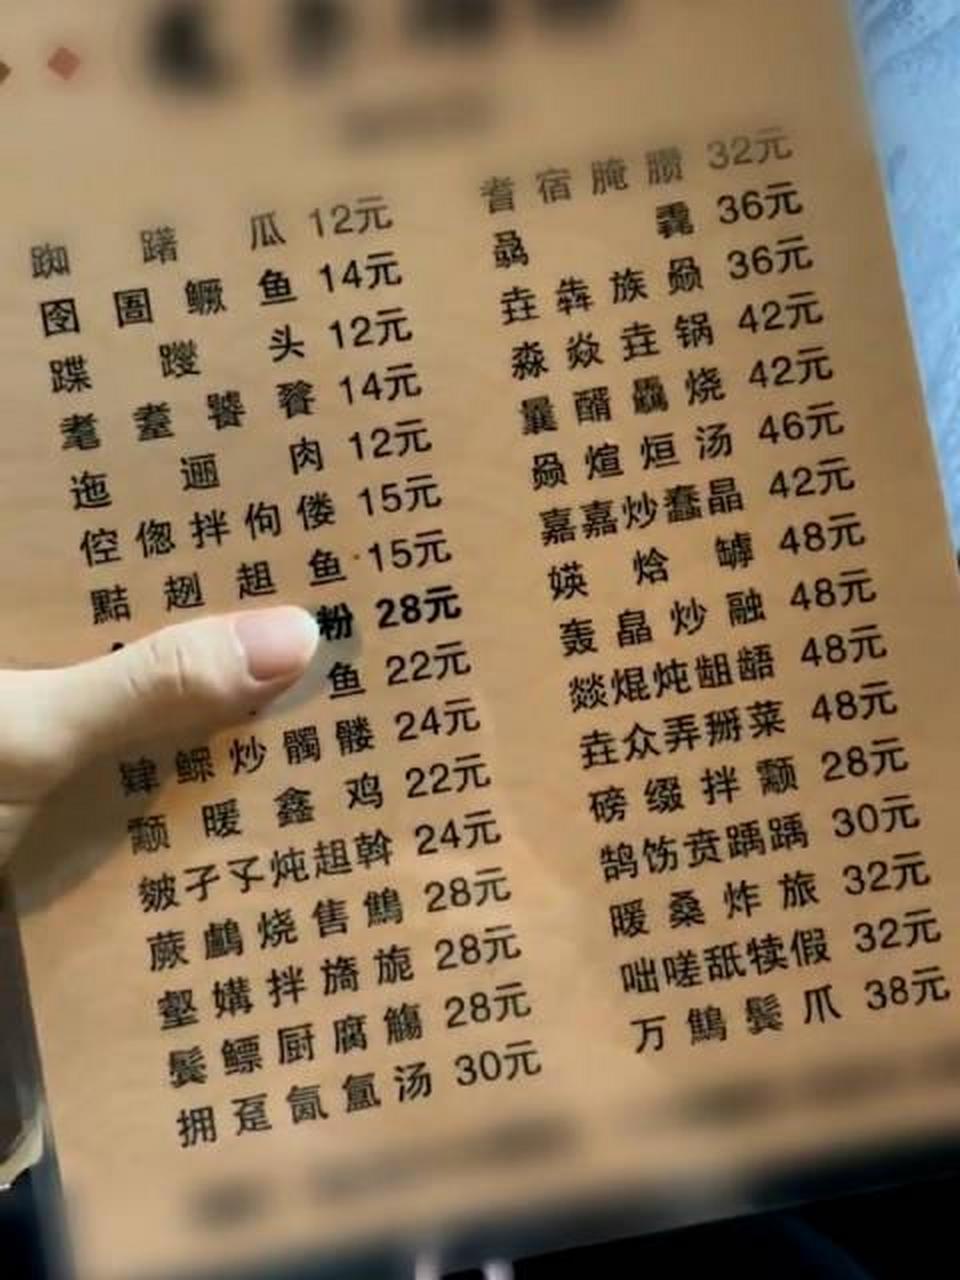 踟躇瓜 12元
囹圄鳜鱼 14元
蹀躞头 12元
耄耋饕餮 14元
迤逦肉 12元
倥偬拌佝偻 15元
黠趔趄鱼 15元
粉 28元
鱼 22元
炒髑髅 24元
颥暖鑫鸡 22元
皴孑孓炖趄斡 24元
蕨鸕烧售鷦 28元
壑媾拌旖旎 28元
鬓鳔厨腐觞 28元
拥趸氤氲汤 30元
耆宿腌臜 32元
骉毳 36元
垚犇族赑 36元
淼焱垚锅 42元
曩醑骉烧 42元
赑煊烜汤 46元
嘉嘉炒蠢晶 42元
媖焓罅 48元
轰皛炒融 48元
燚焜炖龃龉 48元
垚众弄掰菜 48元
磅缀拌颥 28元
鹄饬贲踽踽 30元
暖桑炸旅 32元
咄嗟舐犊假 32元
万鷦鬓爪 38元